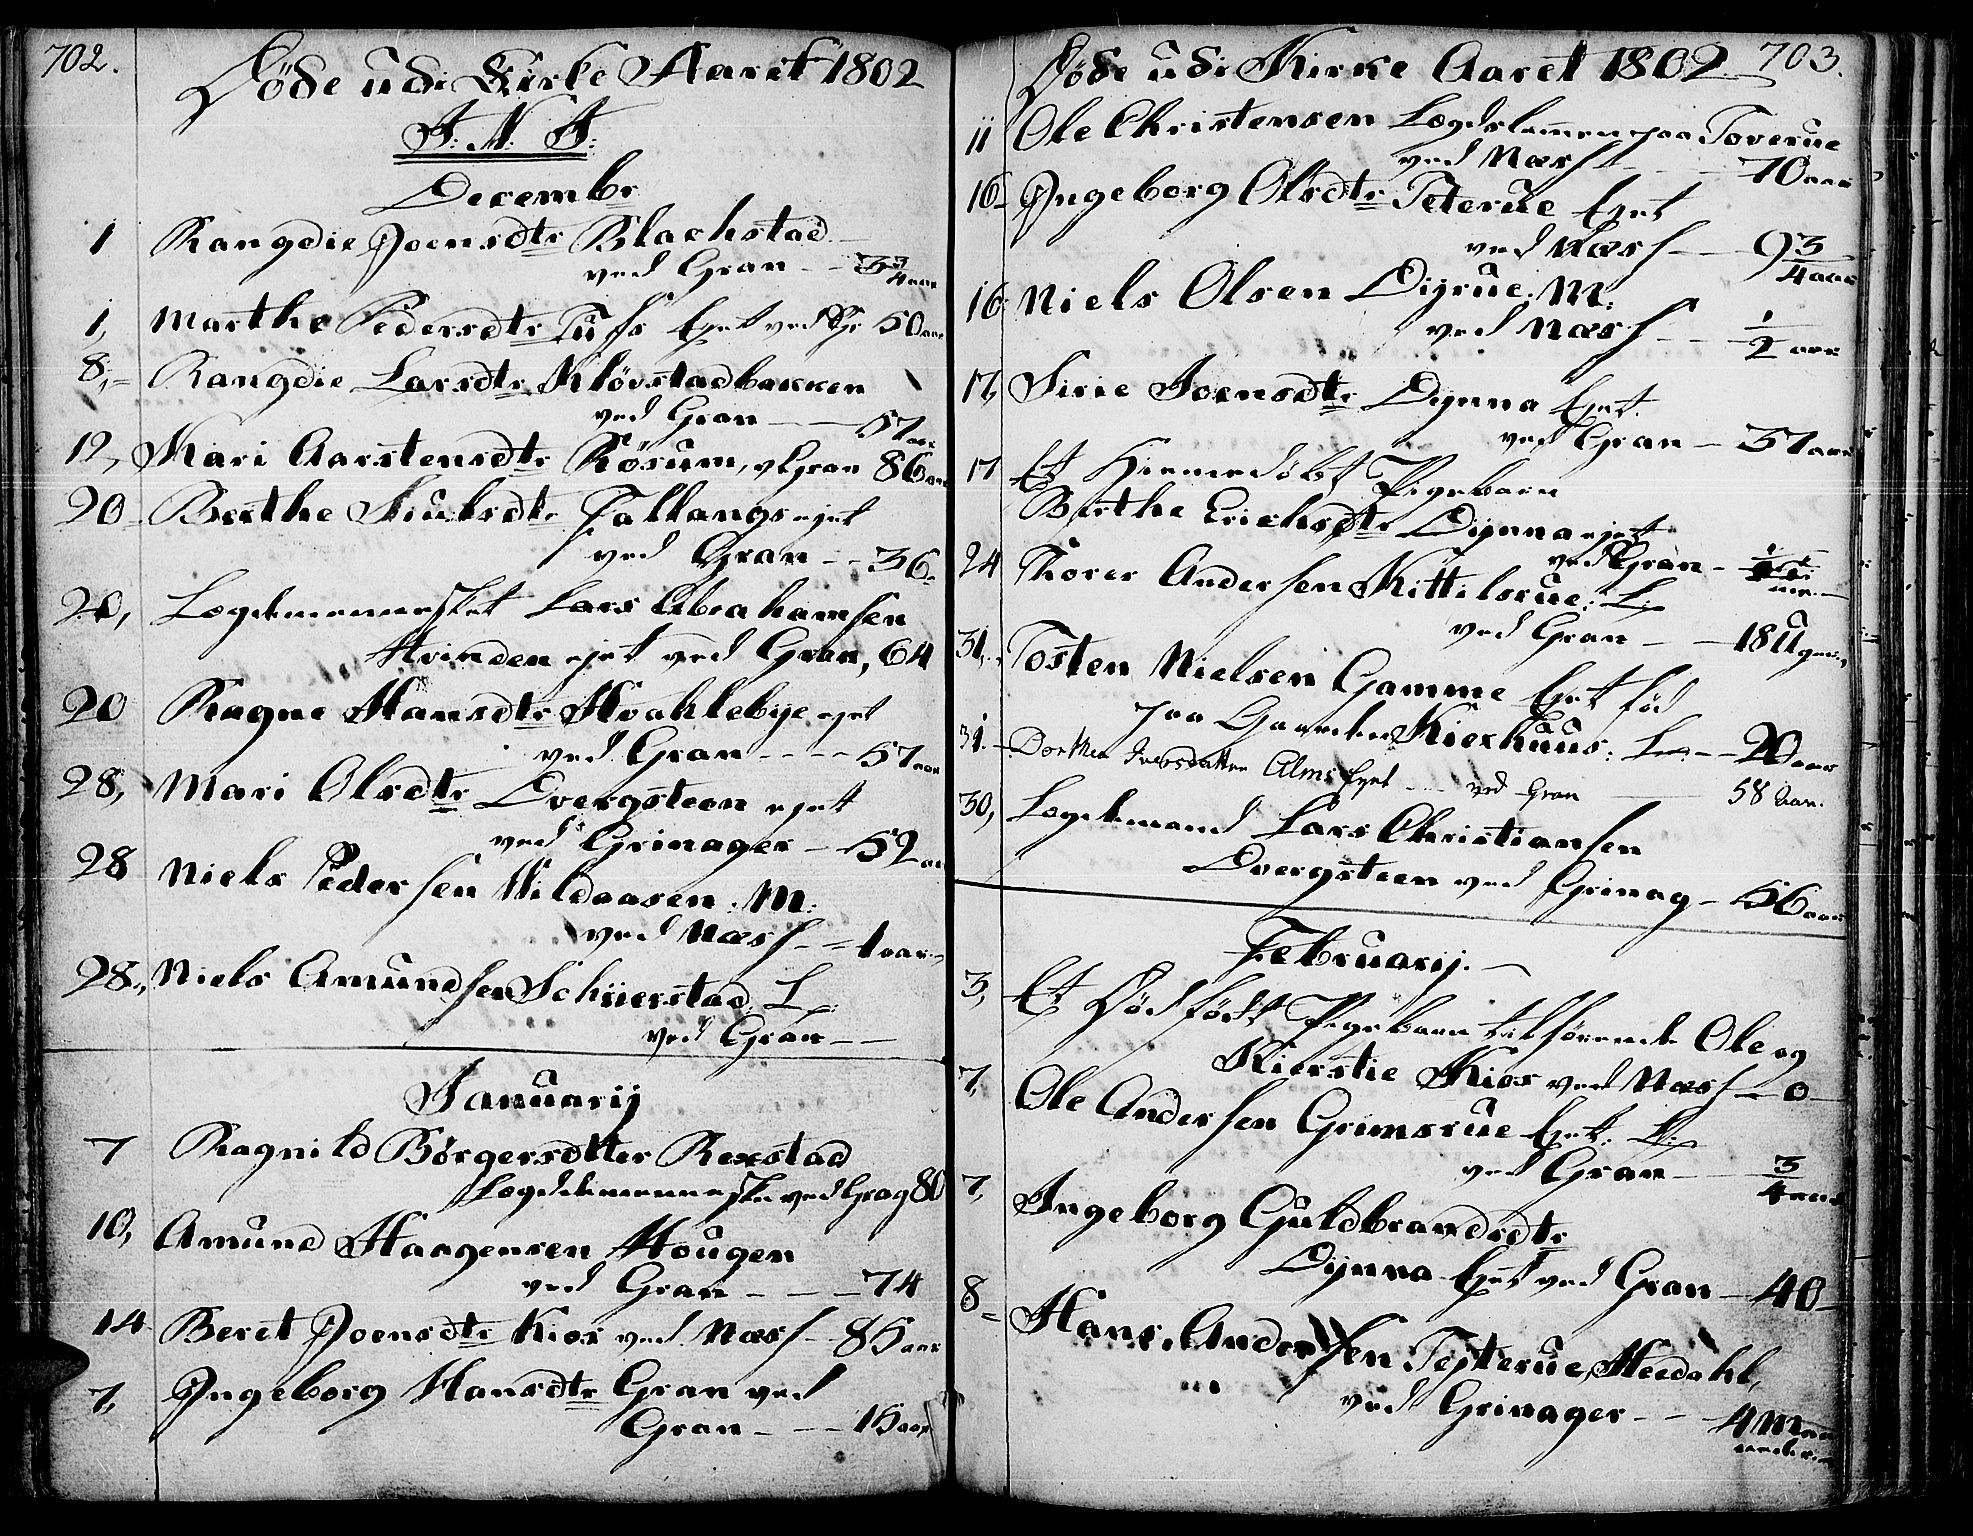 702.
Döde udi Kirke Aaret 1802
F. N. F:
Decembr
1 Rangdie Joensdtr Blachstad
ved Gran -- 3 3/4 aar
1, Marthe Pedersdtr Tufs Ejet ved Gr 50 aar
8,= Rangdie Larsdtr Kløvstadbakken
ved Gran --- 57 aar
12, Mari Aarstensdtr Røsum, v Gran 86 aar
20 - Berthe Siulsdtr Tallangs ejet
ved Gran -- 36-
20, Lægdemennesket Lars Abrahamsen
Hvinden ejet ved Gran, 64
20 Ragne Hansdtr Hvahlebye ejet
ved Gran ---- 57 aar
28, Mari Olsdtr Dvergsteen ejet
ved Grinager - 52 aar
28 Niels Pedersen Vildaasen: M:
ved Næss -- 1 aar
28., Niels Amundsen Schiierstad L
ved Gran --
Januarij
7 Ragnild Börgersdtter Rexstad
Lægdemenneske ved Grag 80
10, Amund Haagensen Hougen
ved Gran --- 74
14 Beret Joensdtr Kios ved Næss - 85 aar
7, Ingeborg Hansdtr Gran ved
Gran --- 15 aar
703.
Döde udi Kirke Aaret 1802
11 Ole Christensen Lægdslammen paa Toverue
ved Næss -- 70 aar
16- Ingeborg Olsdtr Teterue Ejet
ved Næss -- 93/4 aar
16 Niels Olsen Dijrue: M:
ved Næss -- 1/2 aar
17, Sirie Joensdtr Dynna Ejet
ved Gran - 37 aar
17 Et Hiemmedöbt Pigebarn
Berthe Erichsdtr Dijnna ejet
ved Gran -
24 Thorer Andersen Kittilsrue: L:
ved Gran -- 18 U
31., Tosten Nielsen Gamme Ejet föd
paa Gaarden Kiexhuus: L -- 20 aar
31.- Dorthea Iversdatter Alms Ejet --- ved Gran --- 58 Aar.
30, Lægdemand Lars Christiansen
Dvergsteen ved Grinag - 56 aar
Februarij.
3, Et Död födt Pigebarn tilhørende Ole og
Kierstie Kios ved Næss - 0 -
7, Ole Andersen Grimsrue Ejet: L:
ved Gran -- 3/4 aar
7, Ingeborg Guldbrandsdtr
Dijnna Ejet ved Gran - 40 -
8= Hans Andersen Tejterue, Heedahl,
ved Grinager --- 4 M